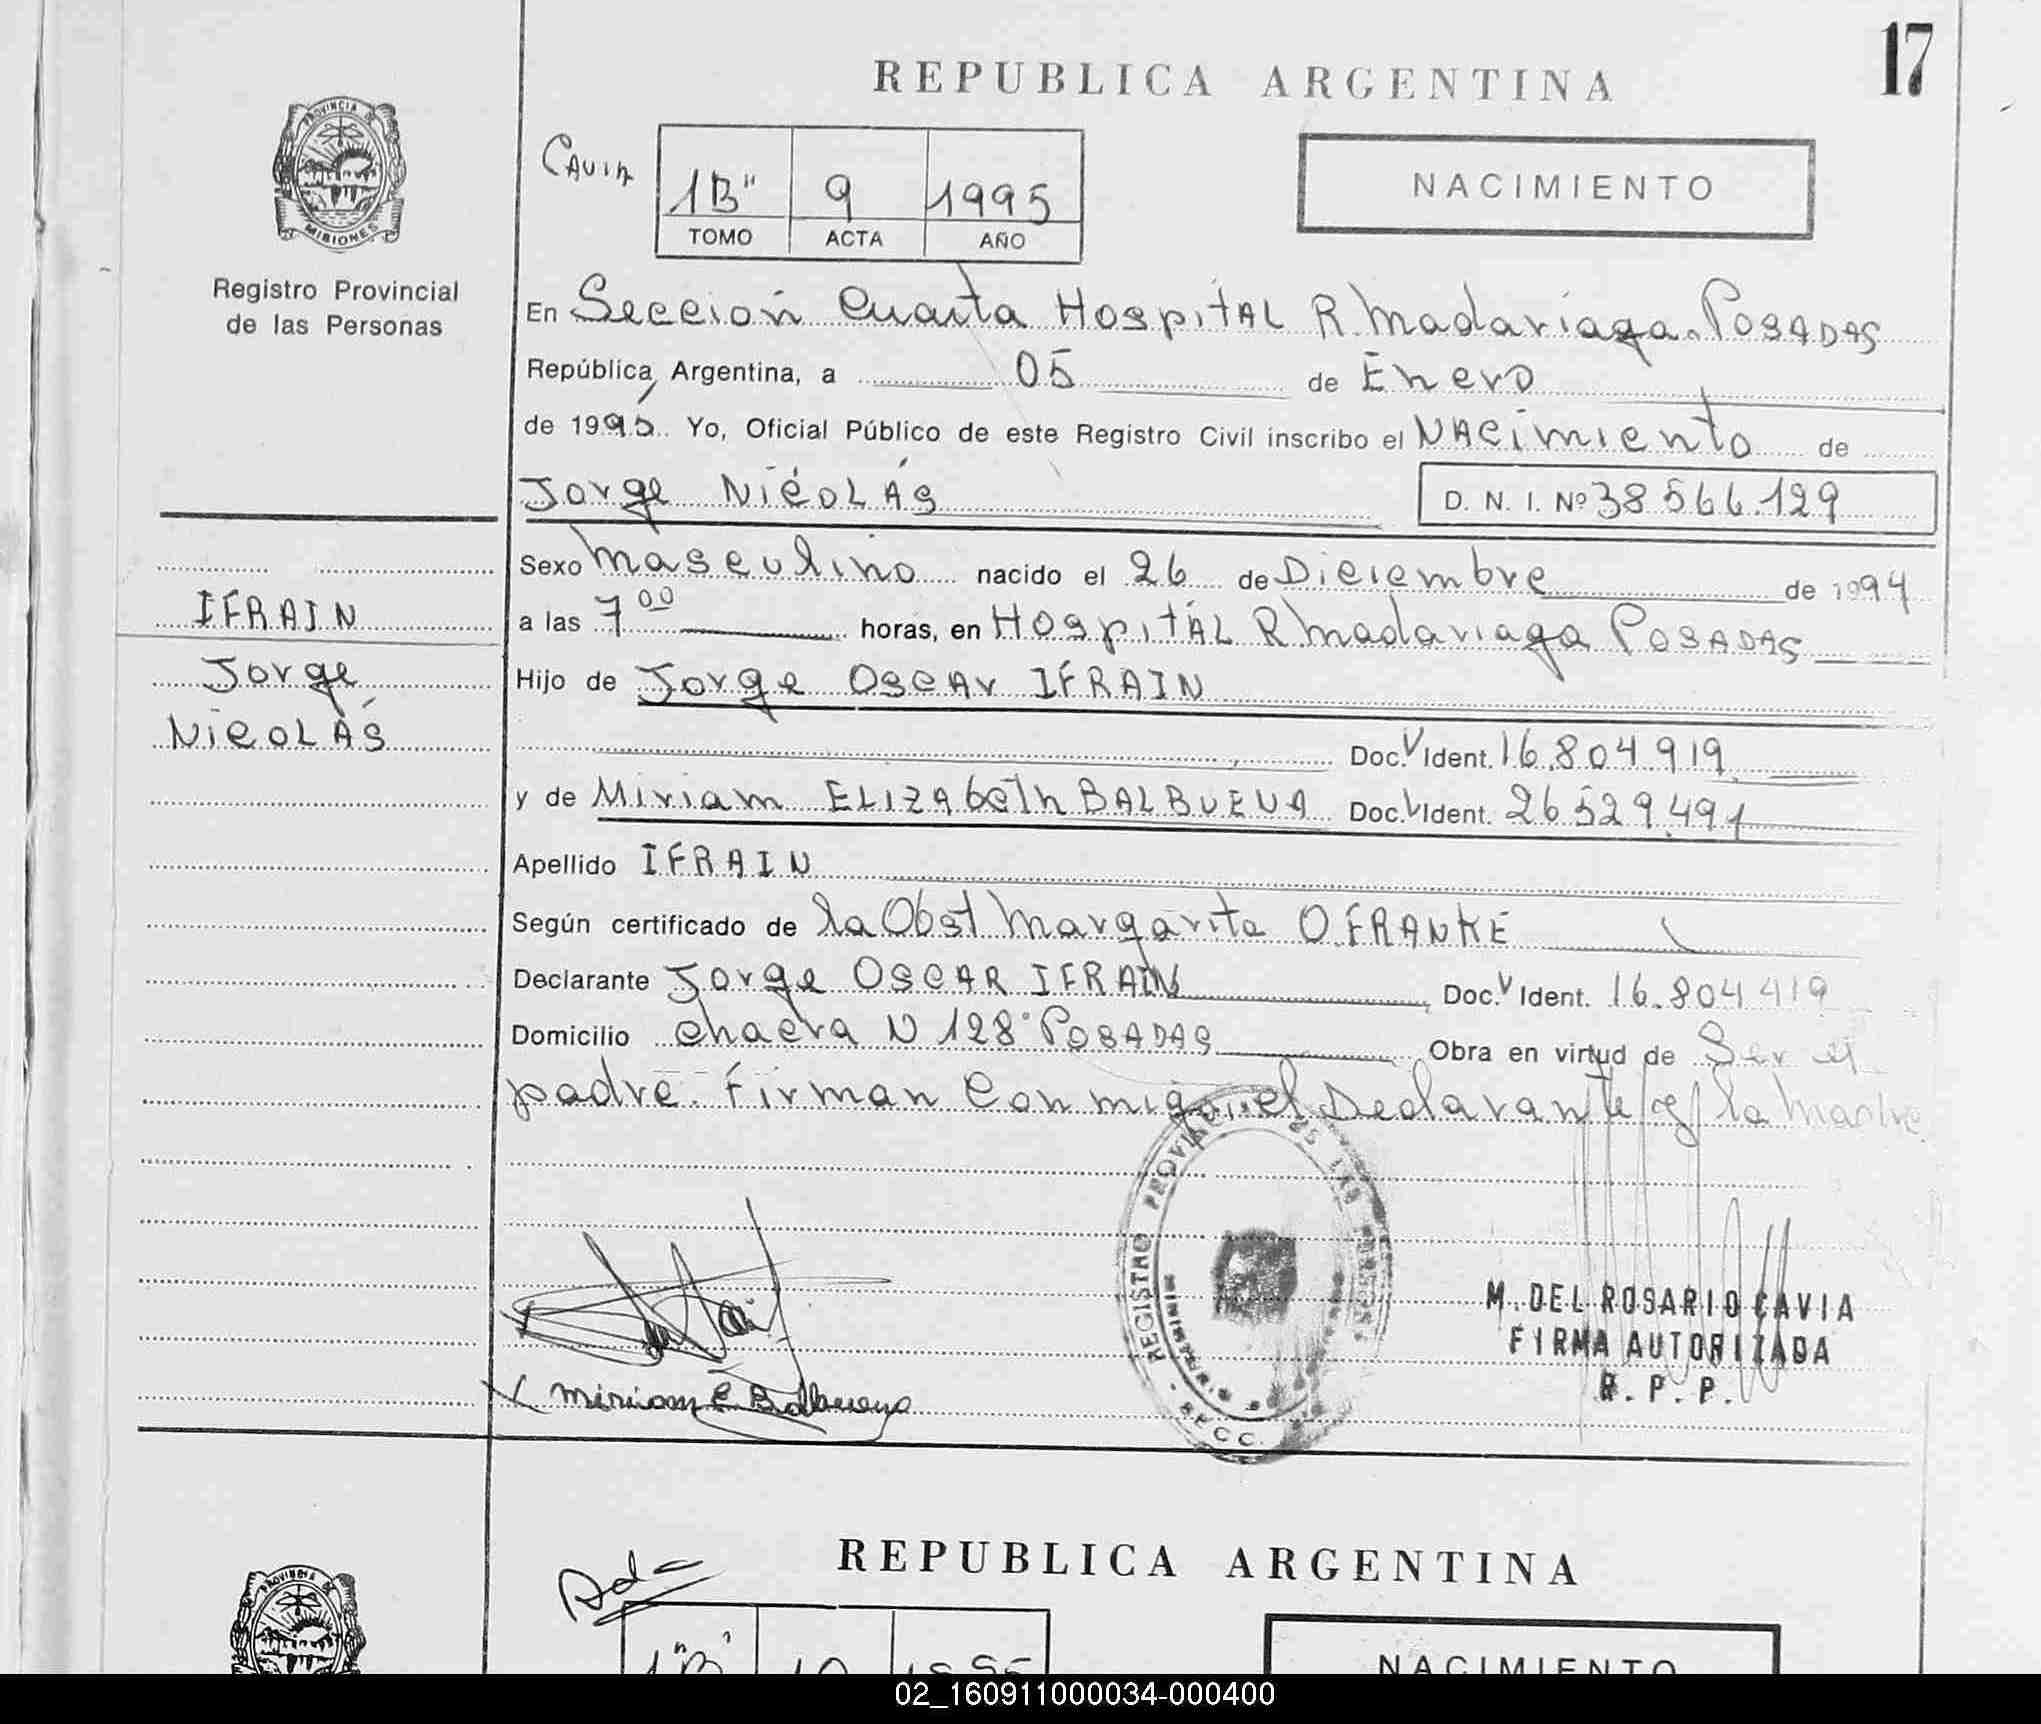 17
REPUBLICA ARGENTINA
PROVINCIA DE
MISIONES
Registro Provincial
de las Personas
1B" 9 1995
TOMO ACTA AÑO
NACIMIENTO
En Sección Cuarta Hospital R Madariaga. Posadas
República Argentina, a 05 de Enero
de 1995 Yo, Oficial Público de este Registro Civil inscribo el Nacimiento de
Jorge Nicolás D. N. I. Nº 38566.129
Sexo masculino nacido el 26 de Diciembre de 1994
IFRAIN
a las 7 00 horas, en Hospital R Madariaga Posadas
Jorge
Hijo de Jorge Oscar IFRAIN
Nicolás
Doc. Ident. 16.804.919
y de Miriam Elizabeth BALBUENA Doc. Ident. 26529.491
Apellido IFRAIN
Según certificado de la Obst Margarita O FRANKE
Declarante Jorge Oscar IFRAIN Doc. Ident. 16.804 419
Domicilio chacra N 128 Posadas Obra en virtud de Ser el
padre. Firman Conmigo el Declarante y la madre
REGISTRO PROVINCIAL DE LAS PERSONAS
Miriam E Balbuena
M. DEL ROSARIO CAVIA
FIRMA AUTORIZADA
R. P. P.
REPUBLICA ARGENTINA
PROVINCIA DE
1"B" 10 1995
NACIMIENTO
02_160911000034-000400